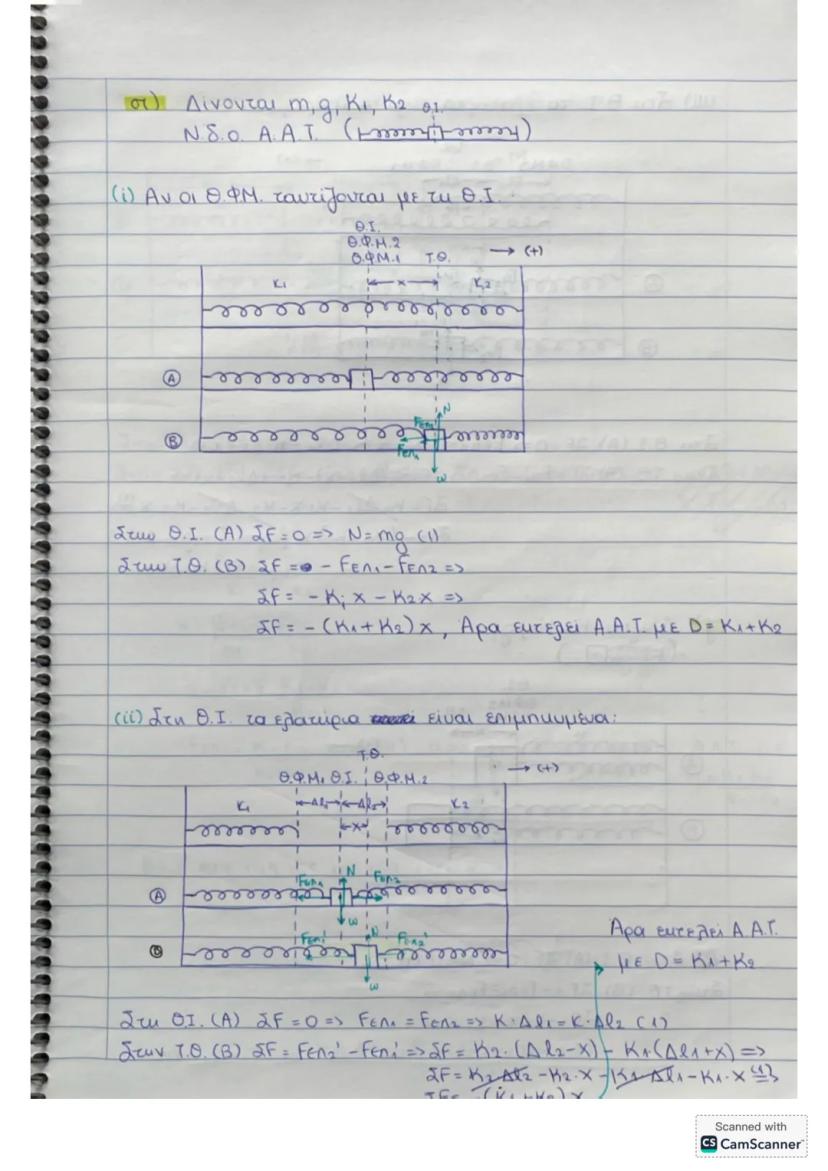 στ) Δίνονται m, g, K₁, K₂ Θ.Ι.
Ν.δ.ο. Α.Α.Τ. ( )
(i) Αν οι Θ.Φ.Μ. ταυτίζονται με τη Θ.Ι.
Θ.Ι.
Θ.Φ.Μ.2
Θ.Φ.Μ.1 Τ.Θ. → (+)
K₁ x K₂
Α
N
Fελ₂
Β
Fελ₁
w
Στην Θ.Ι. (Α) ΣF=0 => N=mg (1)
Στην Τ.Θ. (Β) ΣF = - Fελ₁ - Fελ₂ =>
ΣF = - K₁ x - K₂ x =>
ΣF = - (K₁+K₂) x, Άρα εκτελεί Α.Α.Τ. με D = K₁+K₂
(ii) Στη Θ.Ι. τα ελατήρια είναι επιμηκυμένα:
Τ.Θ.
Θ.Φ.Μ₁ Θ.Ι. Θ.Φ.Μ.2 → (+)
K₁ Δl₁ Δl₂ K₂
x
Fελ₁ N Fελ₂
Α
w
Fελ₁' N Fελ₂'
Β
w
Άρα εκτελεί Α.Α.Τ.
με D = K₁+K₂
Στη Θ.Ι. (Α) ΣF=0 => Fελ₁ = Fελ₂ => K·Δl₁ = K·Δl₂ (1)
Στην Τ.Θ. (Β) ΣF = Fελ₂' - Fελ₁' => ΣF = K₂·(Δl₂-x) - K₁(Δl₁+x) =>
ΣF = K₂Δl₂ - K₂·x - K₁Δl₁ - K₁·x (1)=>
ΣF = -(K₁+K₂)x
Scanned with
CS CamScanner